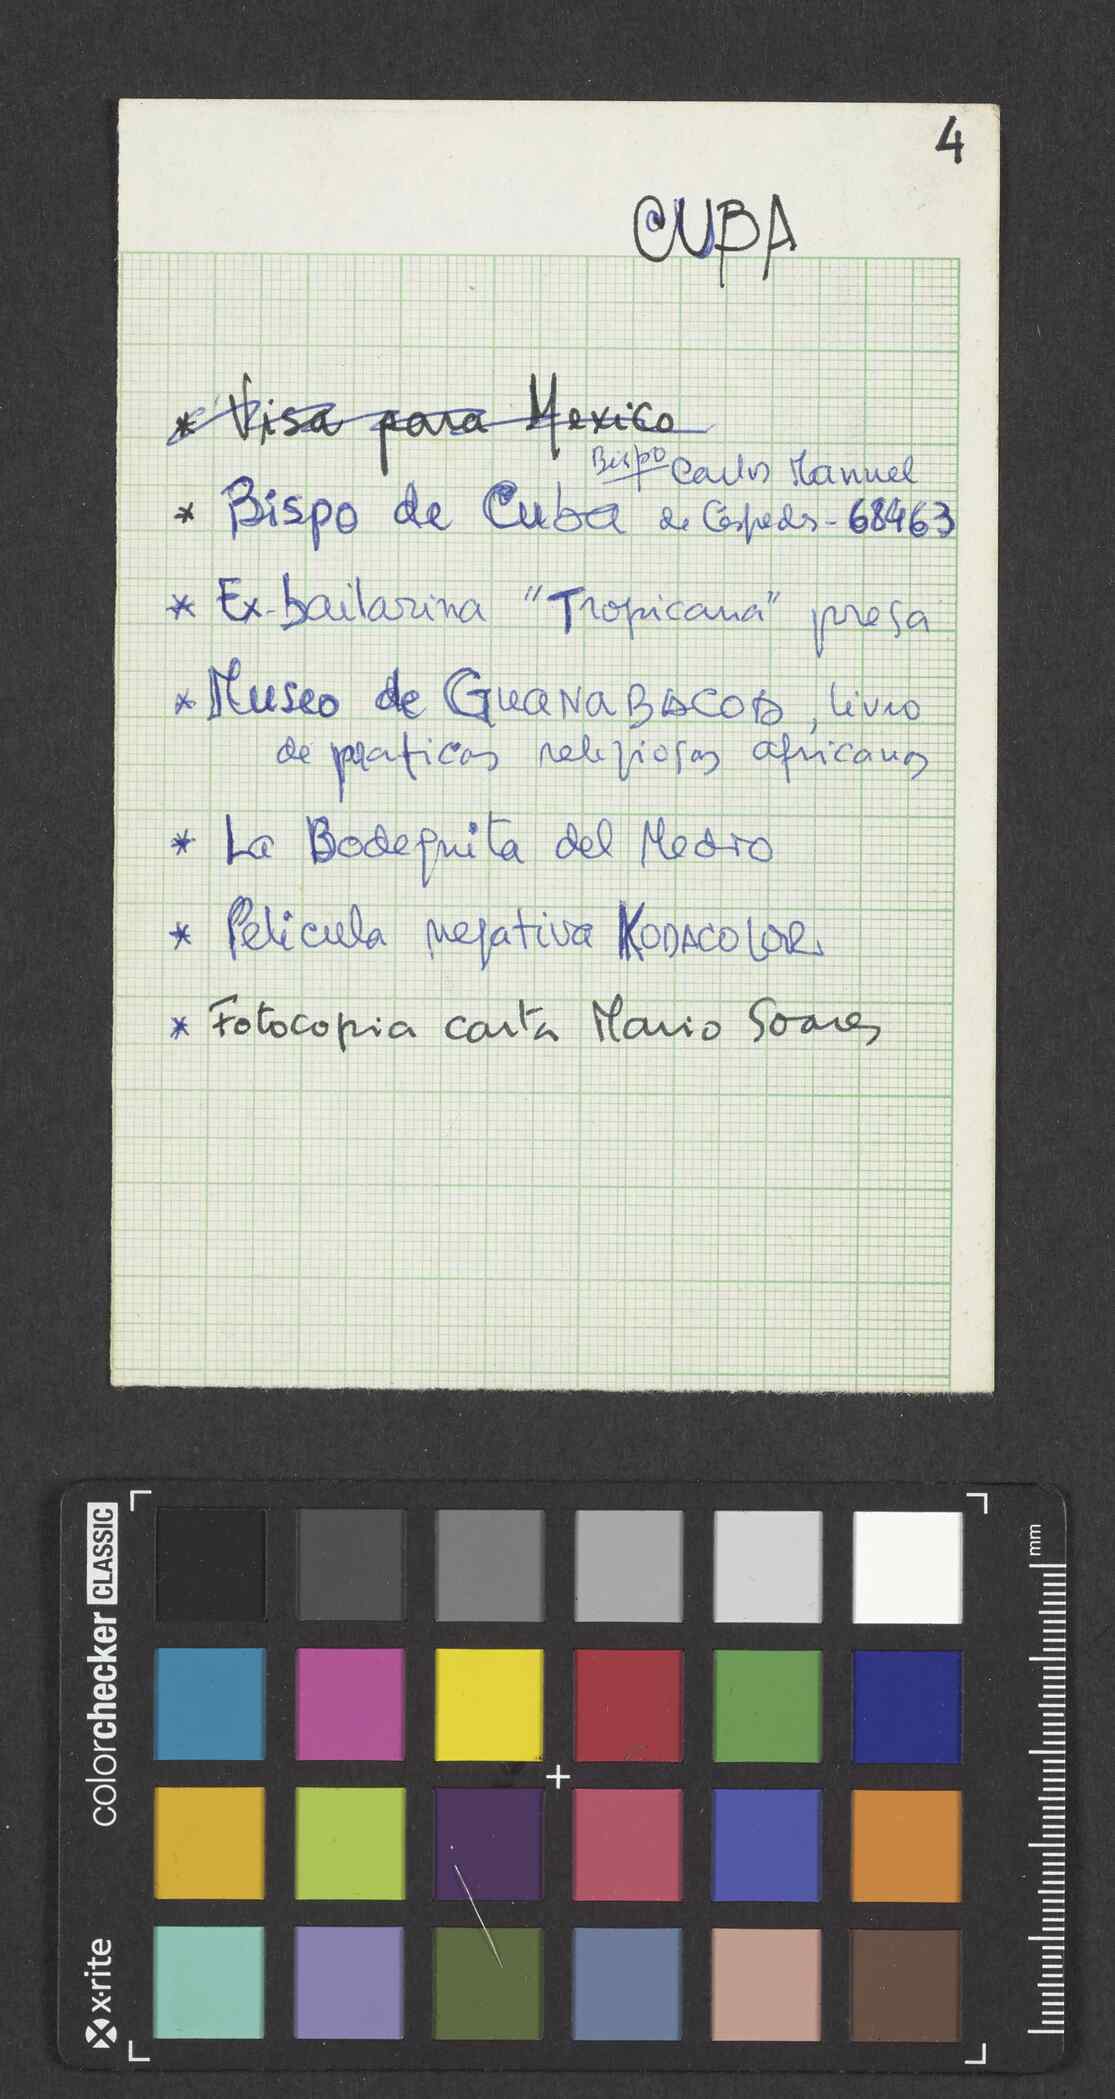 4
CUBA
* Visa para Mexico
Bispo Carlos Manuel
* Bispo de Cuba de Céspedes - 68463
* Ex-bailarina "Tropicana" presa
* Museo de GUANABACOA, livro
de praticas religiosas africanas
* La Bodeguita del Medio
* Pelicula negativa KODACOLOR
* Fotocopia carta Mario Soares
colorchecker CLASSIC
x-rite
mm